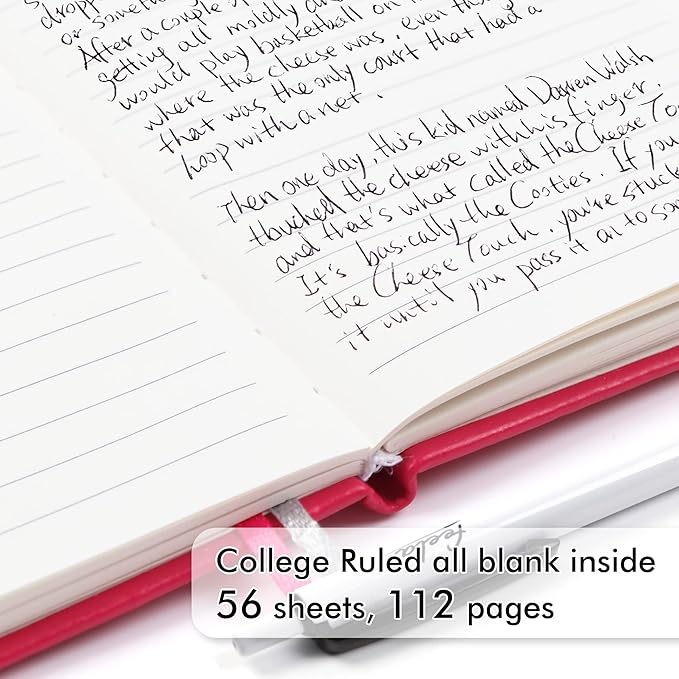 dropp
or somethin
After a couple o
getting all moldly an
would play basketball on t
where the cheese was, even thou
that was the only court that had a
hoop with a net.
Then one day, this kid named Darren Walsh
touched the cheese with his finger.
and that's what called the Cheese To
It's basically the Cooties. If you
the Cheese Touch, you're stuck
it until you pass it on to so
feela
College Ruled all blank inside
56 sheets, 112 pages